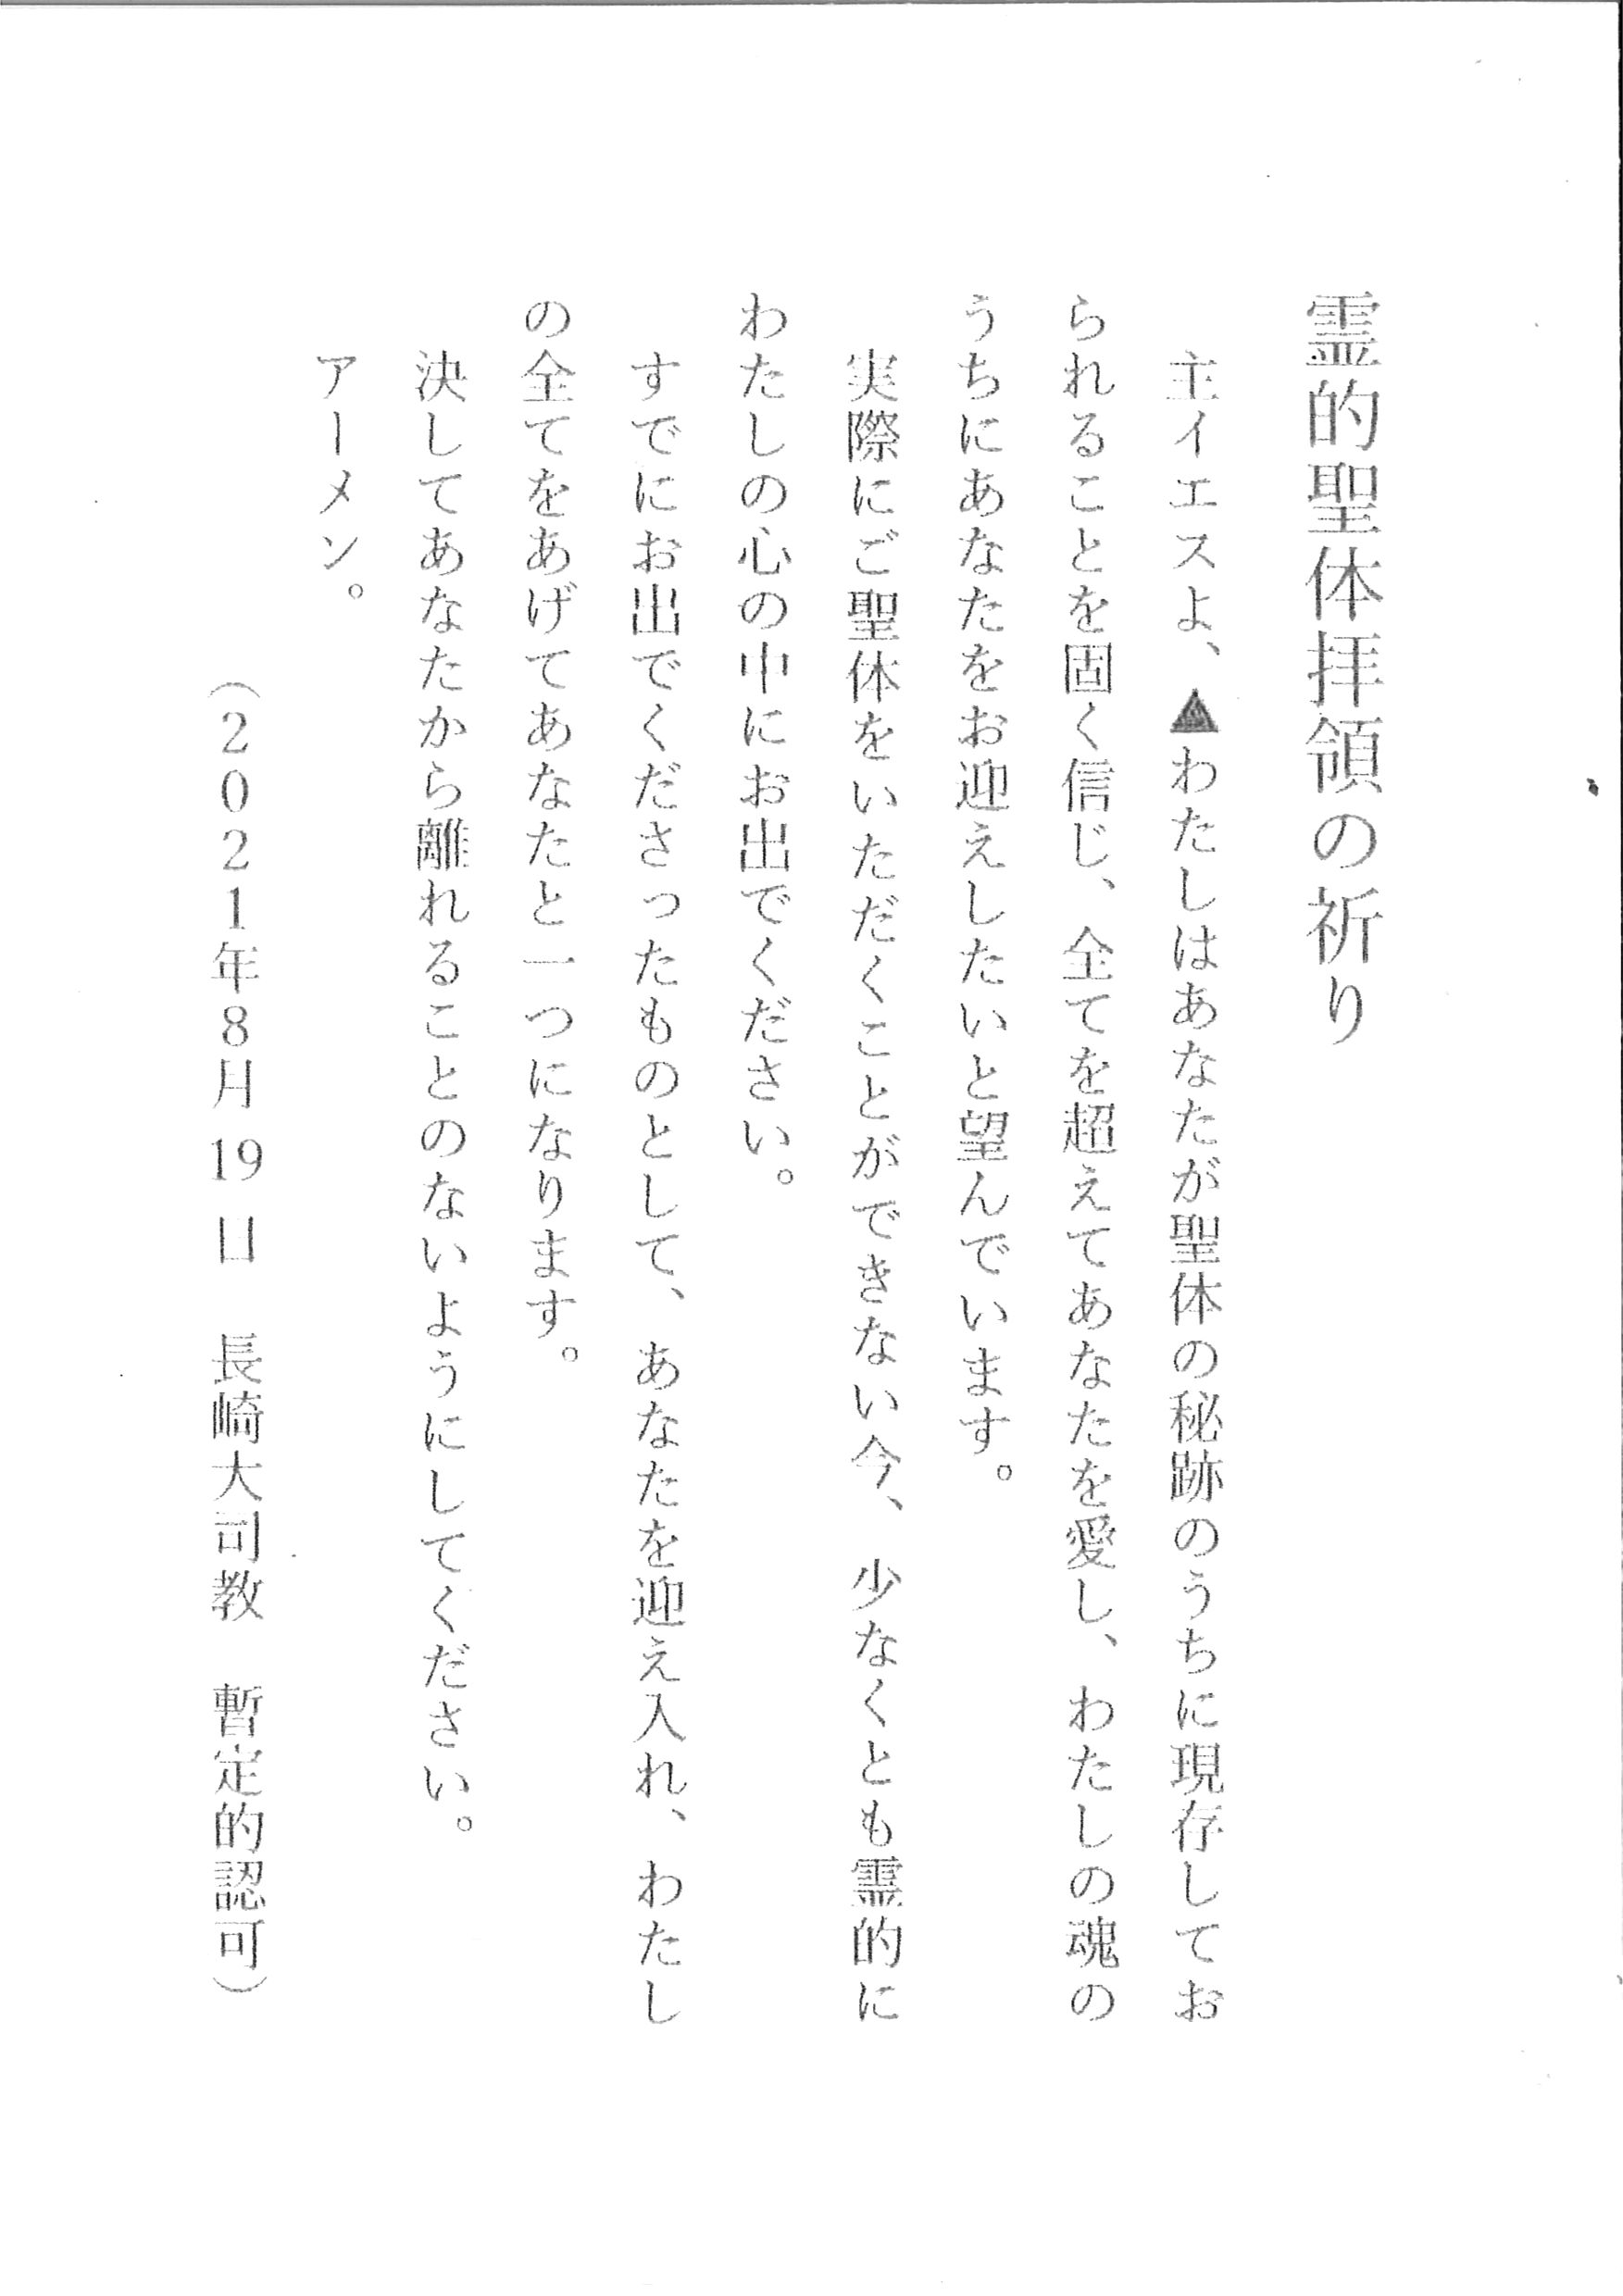 霊的聖体拝領の祈り
主イエスよ、▲わたしはあなたが聖体の秘跡のうちに現存してお
られることを固く信じ、全てを超えてあなたを愛し、わたしの魂の
うちにあなたをお迎えしたいと望んでいます。
実際にご聖体をいただくことができない今、少なくとも霊的に
わたしの心の中にお出でください。
すでにお出でくださったものとして、あなたを迎え入れ、わたし
の全てをあげてあなたと一つになります。
決してあなたから離れることのないようにしてください。
アーメン。
（2021年8月19日　長崎大司教　暫定的認可）